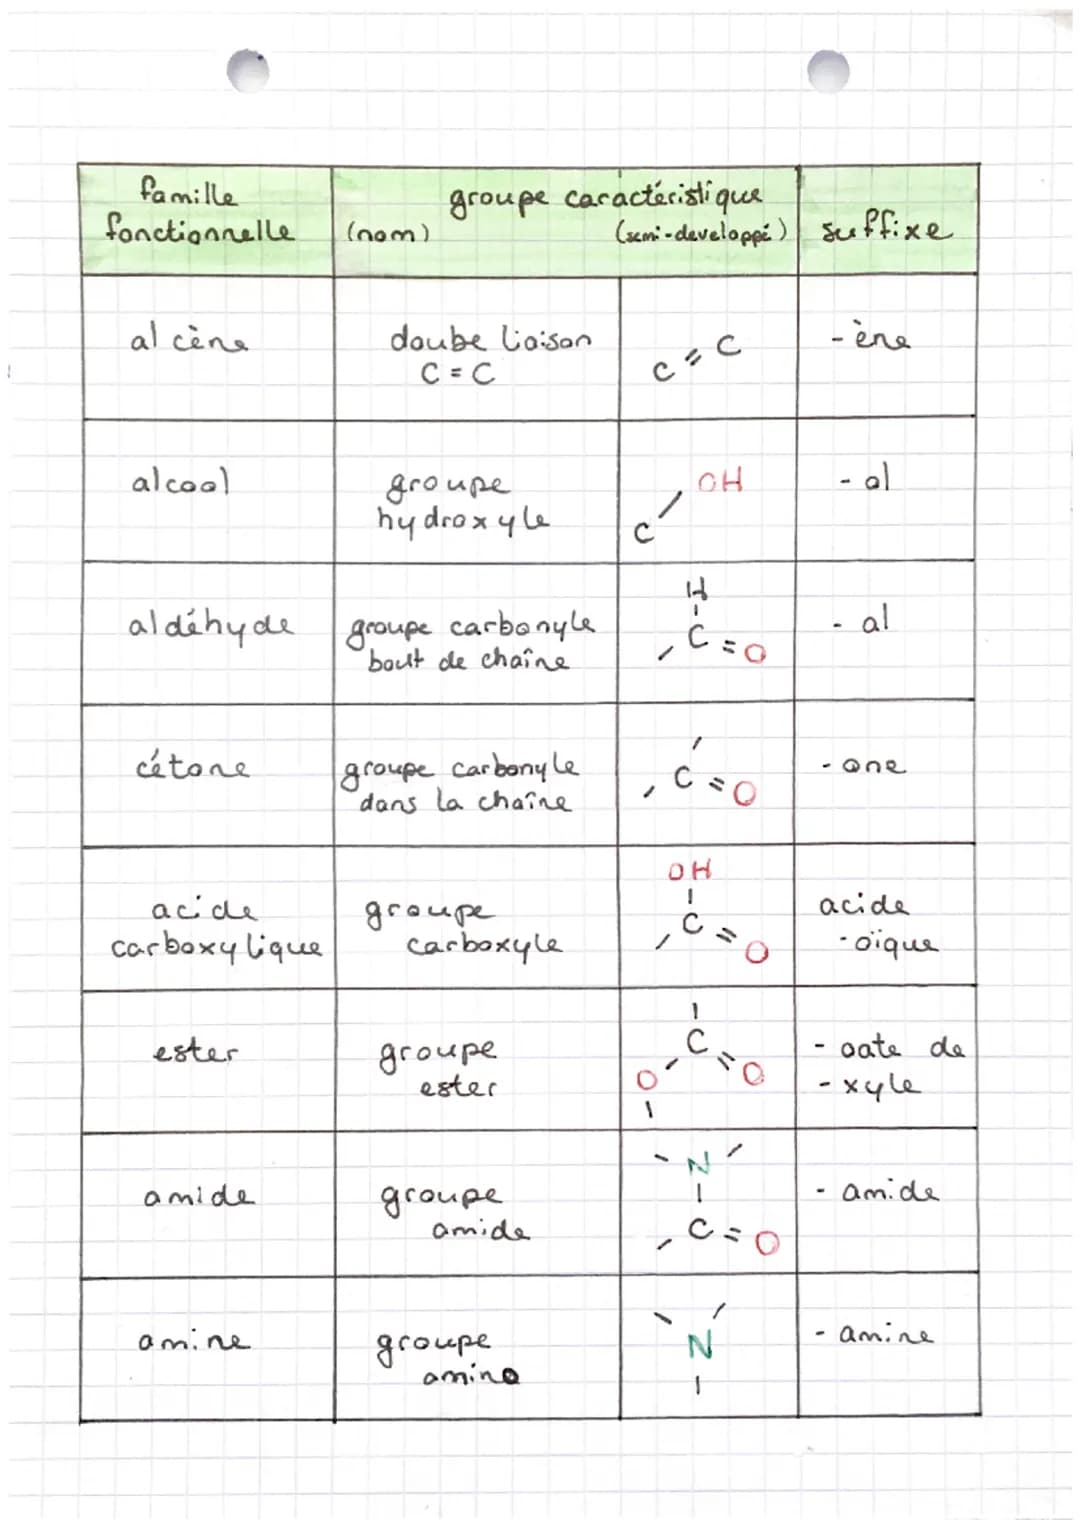 famille
fonctionnelle
groupe caractéristique
(nom) (semi-developpé)
suffixe
alcène
doube liaison
C = C
C = C
- ène
alcool
groupe
hydroxyle
OH
C
- ol
aldéhyde
groupe carbonyle
bout de chaîne
H
C = O
- al
cétone
groupe carbonyle
dans la chaîne
C = O
- one
acide
carboxylique
groupe
carboxyle
OH
C = O
acide
-oïque
ester
groupe
ester
C
O O
- oate de
- xyle
amide
groupe
amide
N
C = O
- amide
amine
groupe
amino
N
- amine